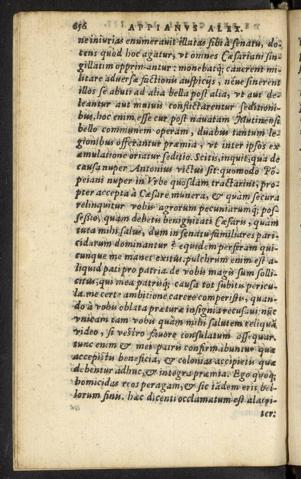 656 APPIANVS ALEX.
ne iniurias enumerauit illatas sibi à senatu, do-
cens quod hoc agatur, vt omnes Cæsariani sin-
gillatim opprimantur: monebatq́; cauerent mi-
litare aduersæ factionis auspicijs, néue sinerent
illos se abuti ad alia bella post alia, vt aut de-
leantur aut mutuis conflictarentur seditioni-
bus, hoc enim esse cur post nauatam Mutinensi
bello communem operam, duabus tantum le-
gionibus offerantur præmia, vt inter ipsos ex
æmulatione oriatur seditio. Scitis, inquit, qua de
causa nuper Antonius victus sit: quomodo Pō-
peiani nuper in Vrbe quosdam tractarint, pro-
pter accepta à Cæsare munera, & quàm secura
relinquitur vobis agrorum pecuniarumq́; pos-
sessio, quàm debetis benignitati Cæsaris, quàm
tuta mihi salus, dum in senatu familiares pari-
cidarum dominantur? equidem perferam qui-
cunque me manet exitus. pulchrum enim est a-
liquid pati pro patria. de vobis magis sum solli-
citus, qui mea patrisq́; causa tot subistis pericu-
la. me certe ambitione carere comperistis, quan-
do à vobis oblata præturæ insignia recusaui: nūc
vnicam tam vobis quàm mihi salutem reliquā
video, si vestro fauore consulatum assequar.
tunc enim & mei patris confirmabuntur quæ
accepistis beneficia, & coloniæ accipietis quæ
debentur adhuc, & integra præmia. Ego quoq́;
homicidas reos peragam, & sic tādem erit bel-
lorum finis. hæc dicenti occlamatum est alacri-
ter: